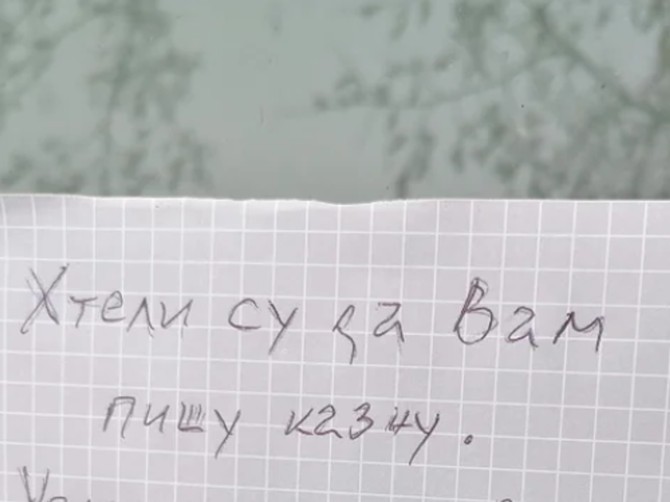 Хтели су да Вам
пишу казну.